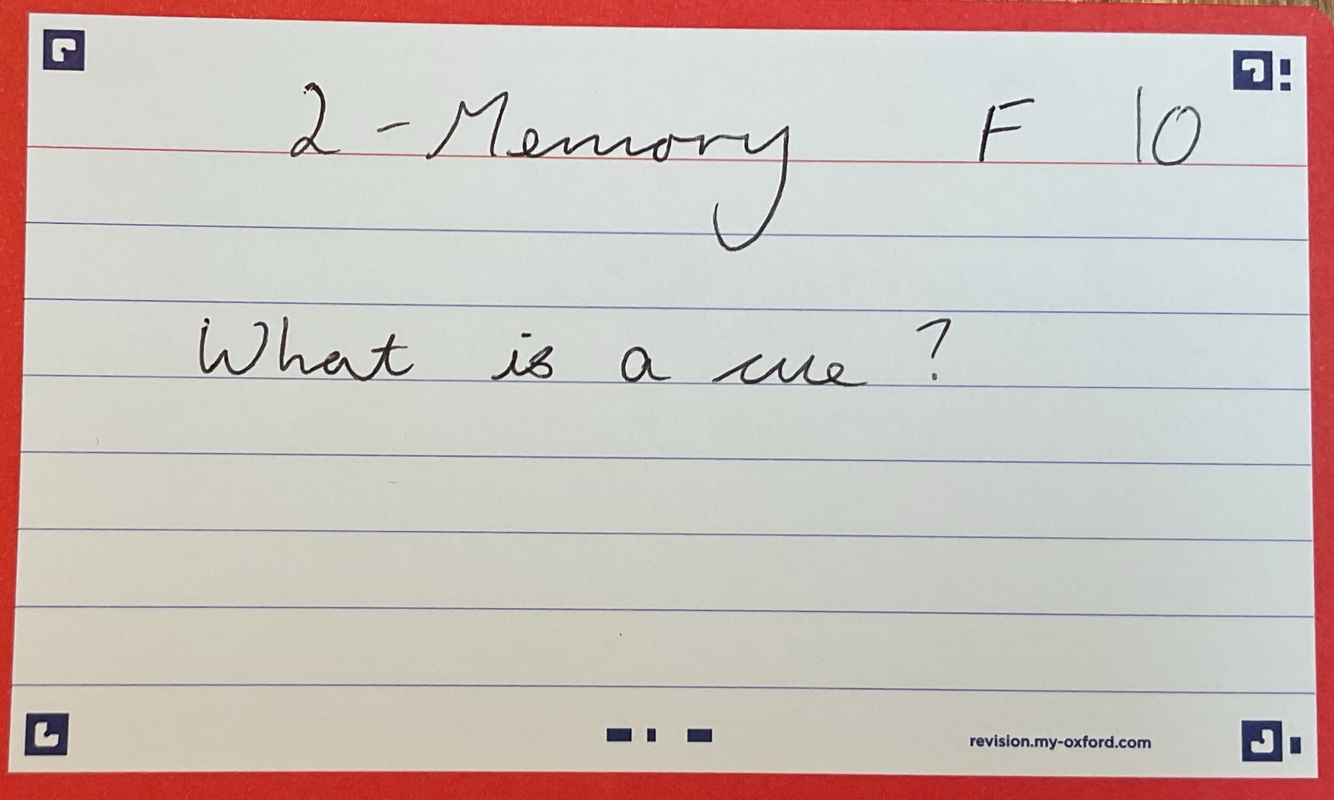 2 - Memory F 10
What is a cue ?
revision.my-oxford.com